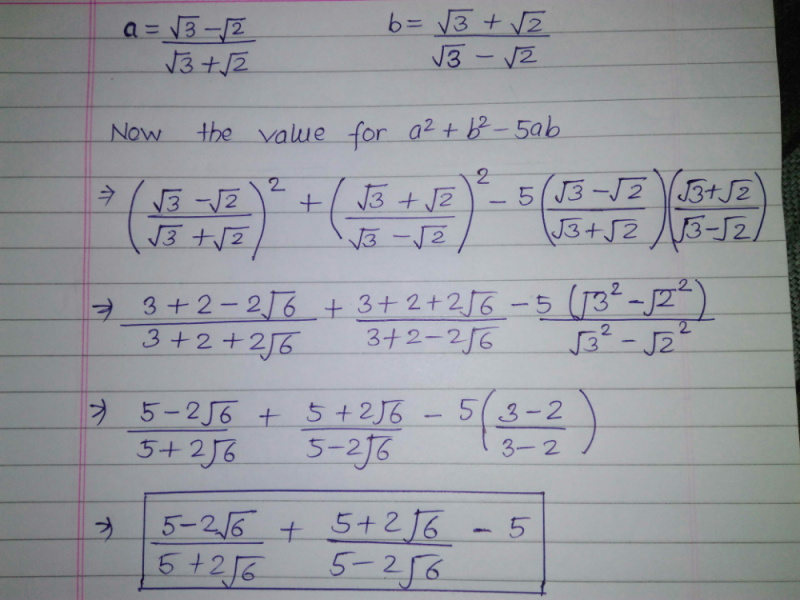 a = √3 - √2 / √3 + √2    b = √3 + √2 / √3 - √2
Now the value for a² + b² - 5ab
⇒ (√3 - √2 / √3 + √2)² + (√3 + √2 / √3 - √2)² - 5 (√3 - √2 / √3 + √2)(√3 + √2 / √3 - √2)
⇒ 3 + 2 - 2√6 / 3 + 2 + 2√6 + 3 + 2 + 2√6 / 3 + 2 - 2√6 - 5 (√3² - √2²) / √3² - √2²
⇒ 5 - 2√6 / 5 + 2√6 + 5 + 2√6 / 5 - 2√6 - 5 (3 - 2 / 3 - 2)
⇒ 5 - 2√6 / 5 + 2√6 + 5 + 2√6 / 5 - 2√6 - 5